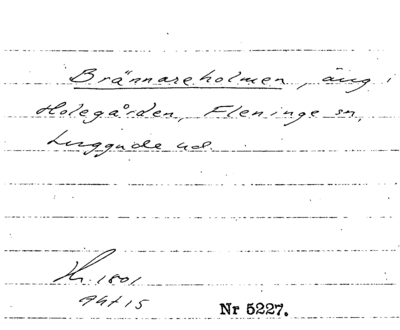 Brännareholmen, äng i
Holegården, Fleninge sn,
Luggude hd
1801
Nr 5227.